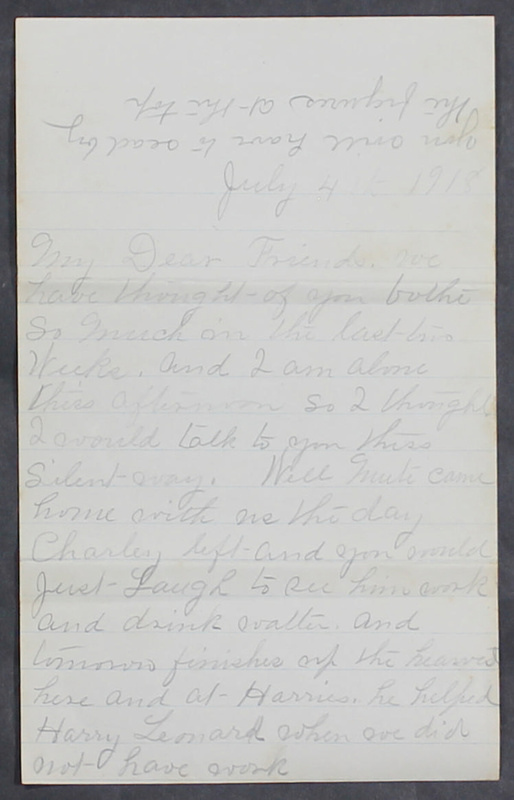 you will have to read by
the figures at the top
July 4th 1918
My Dear Friends. we
have thought of you bothe
So Much in the last two
Weeks. And I am alone
this afternoon So I thought
I would talk to you thiss
Silent way. Well Mute came
home with us the day
Charley left and you would
Just Laugh to see him work
and drink watter. And
tomorow finishes up the hearvest
here and at Harries. he helped
Harry Leonard when we did
not have work